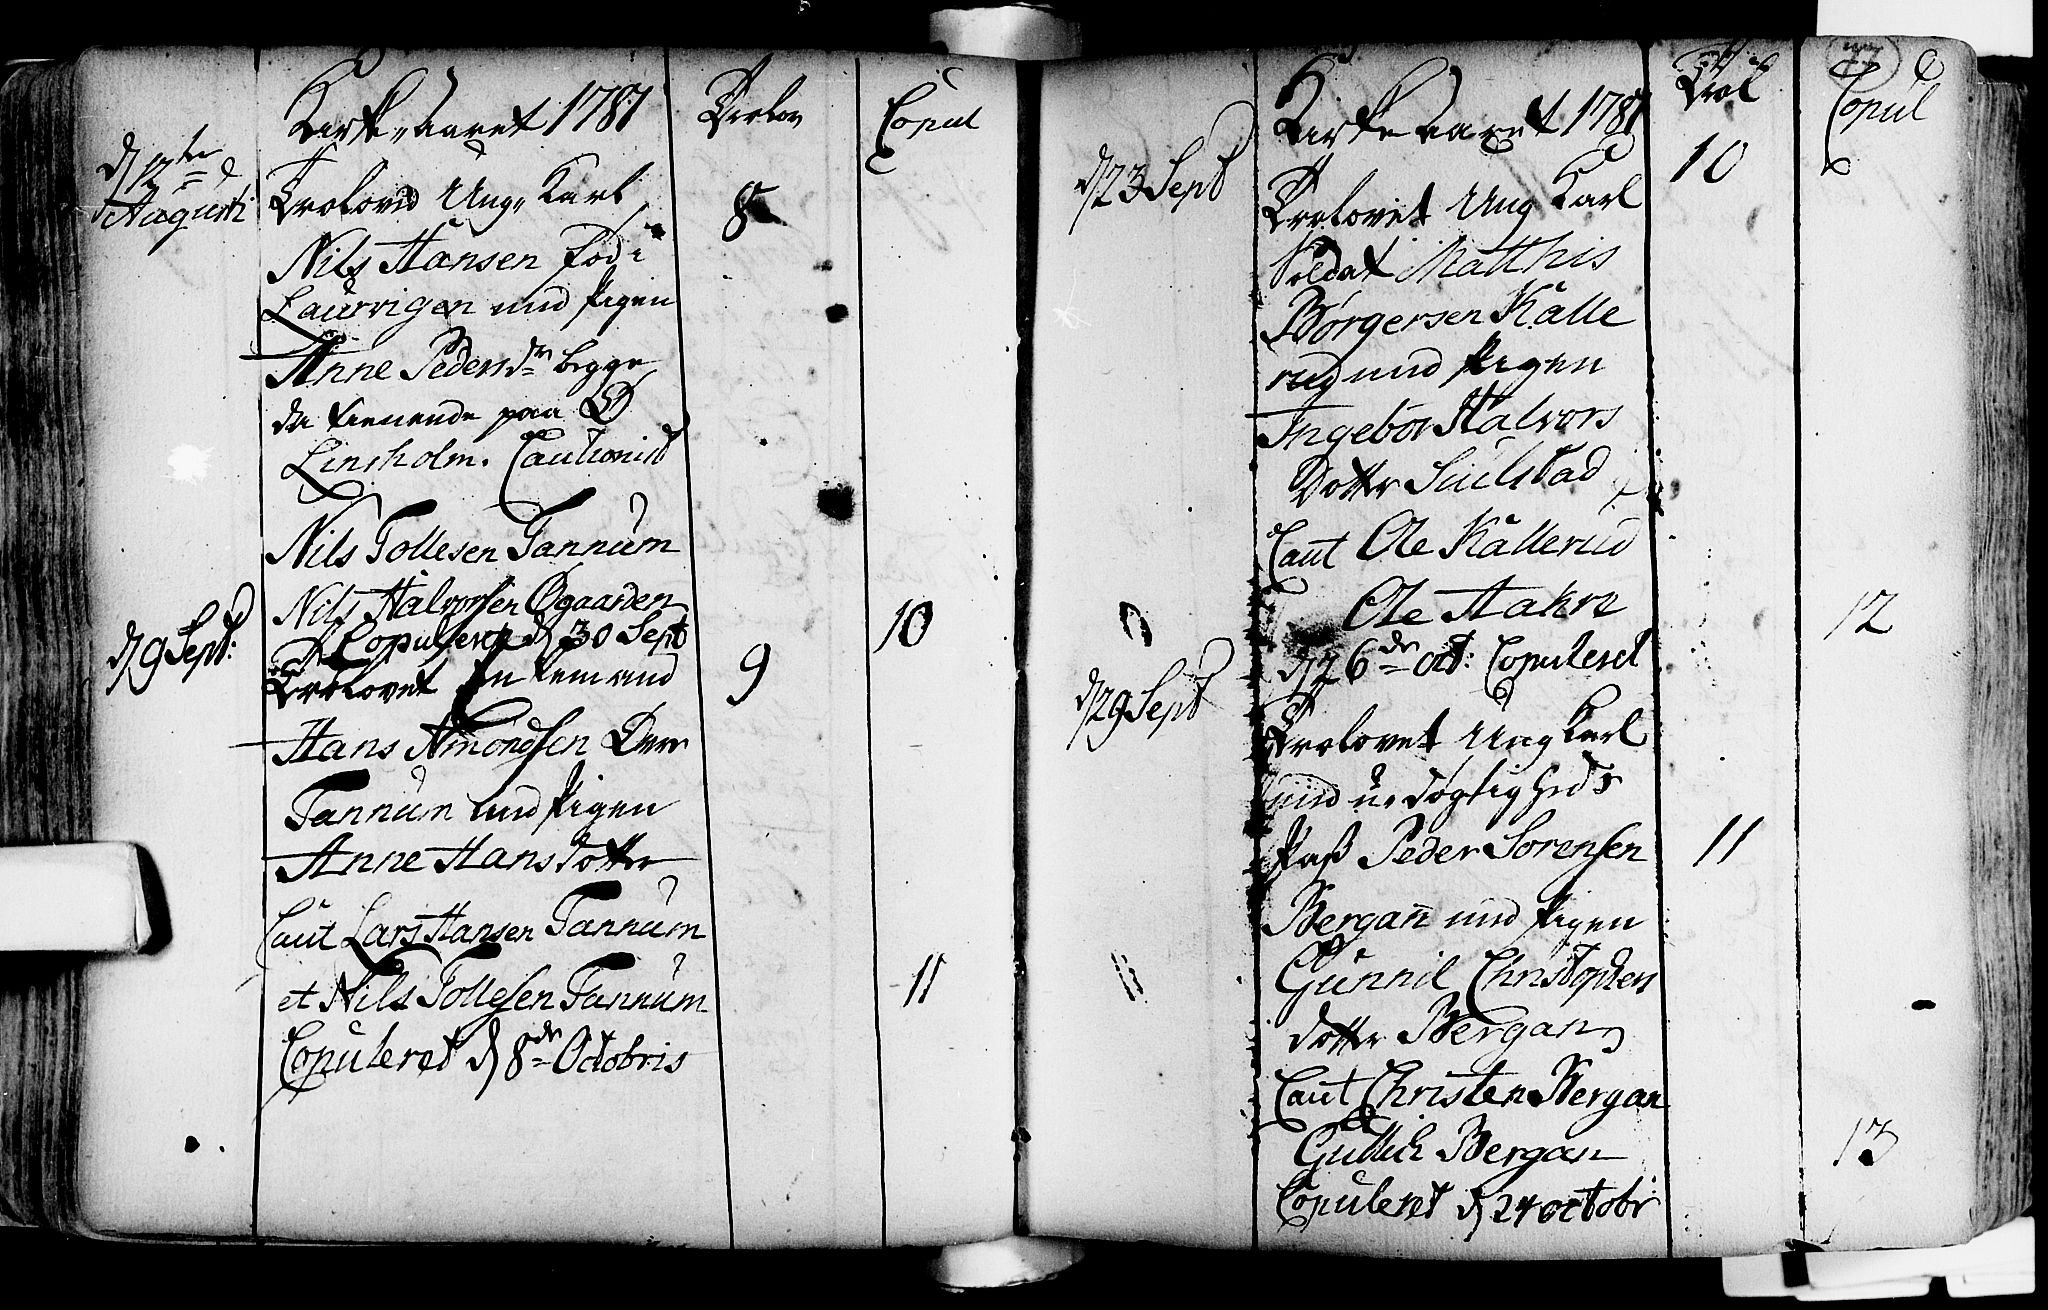 Kirke Aaret 1781
Trolov
Copul
d 12te
Augusti
Trolovid Ung Karl
8
Nils Hansen fod i
Laurvigen med Pigen
Anne Pedersdr begge
da tienende paa
Linsholm. Cautionist
Nils Tollesen Tannum
Nils Halvorsen Øgaarden
Copuleret d 30 Sept
10
d 9 Sept:
Trolovet Enkemand
9
Hans Amondsen
Tannum med Pigen
Anne Hansdotter
Caut Lars Hansen Tannum
et Nils Tollesen Tannum
11
Copuleret d 8de Octobris
Kirke Aaret 1781
Trol
Copul
d 23 Sept
Trolovet Ung Karl
10
Soldat Matthis
Børgersen Kalle
rug med Pigen
Ingebor Halvors
Dotter Suulstad
Caut Ole Kallerud
Ole Aakre
12
d 26de oct: Copuleret
d 29 Sept
Trolovet Ung Karl
med udøgtigheds
Pass Peder Sorensen
11
Bergan med Pigen
Gunnil Christophers
dotter Bergan
Caut Christen Bergan
Gullich Bergan
13
Copuleret d 24 octobr